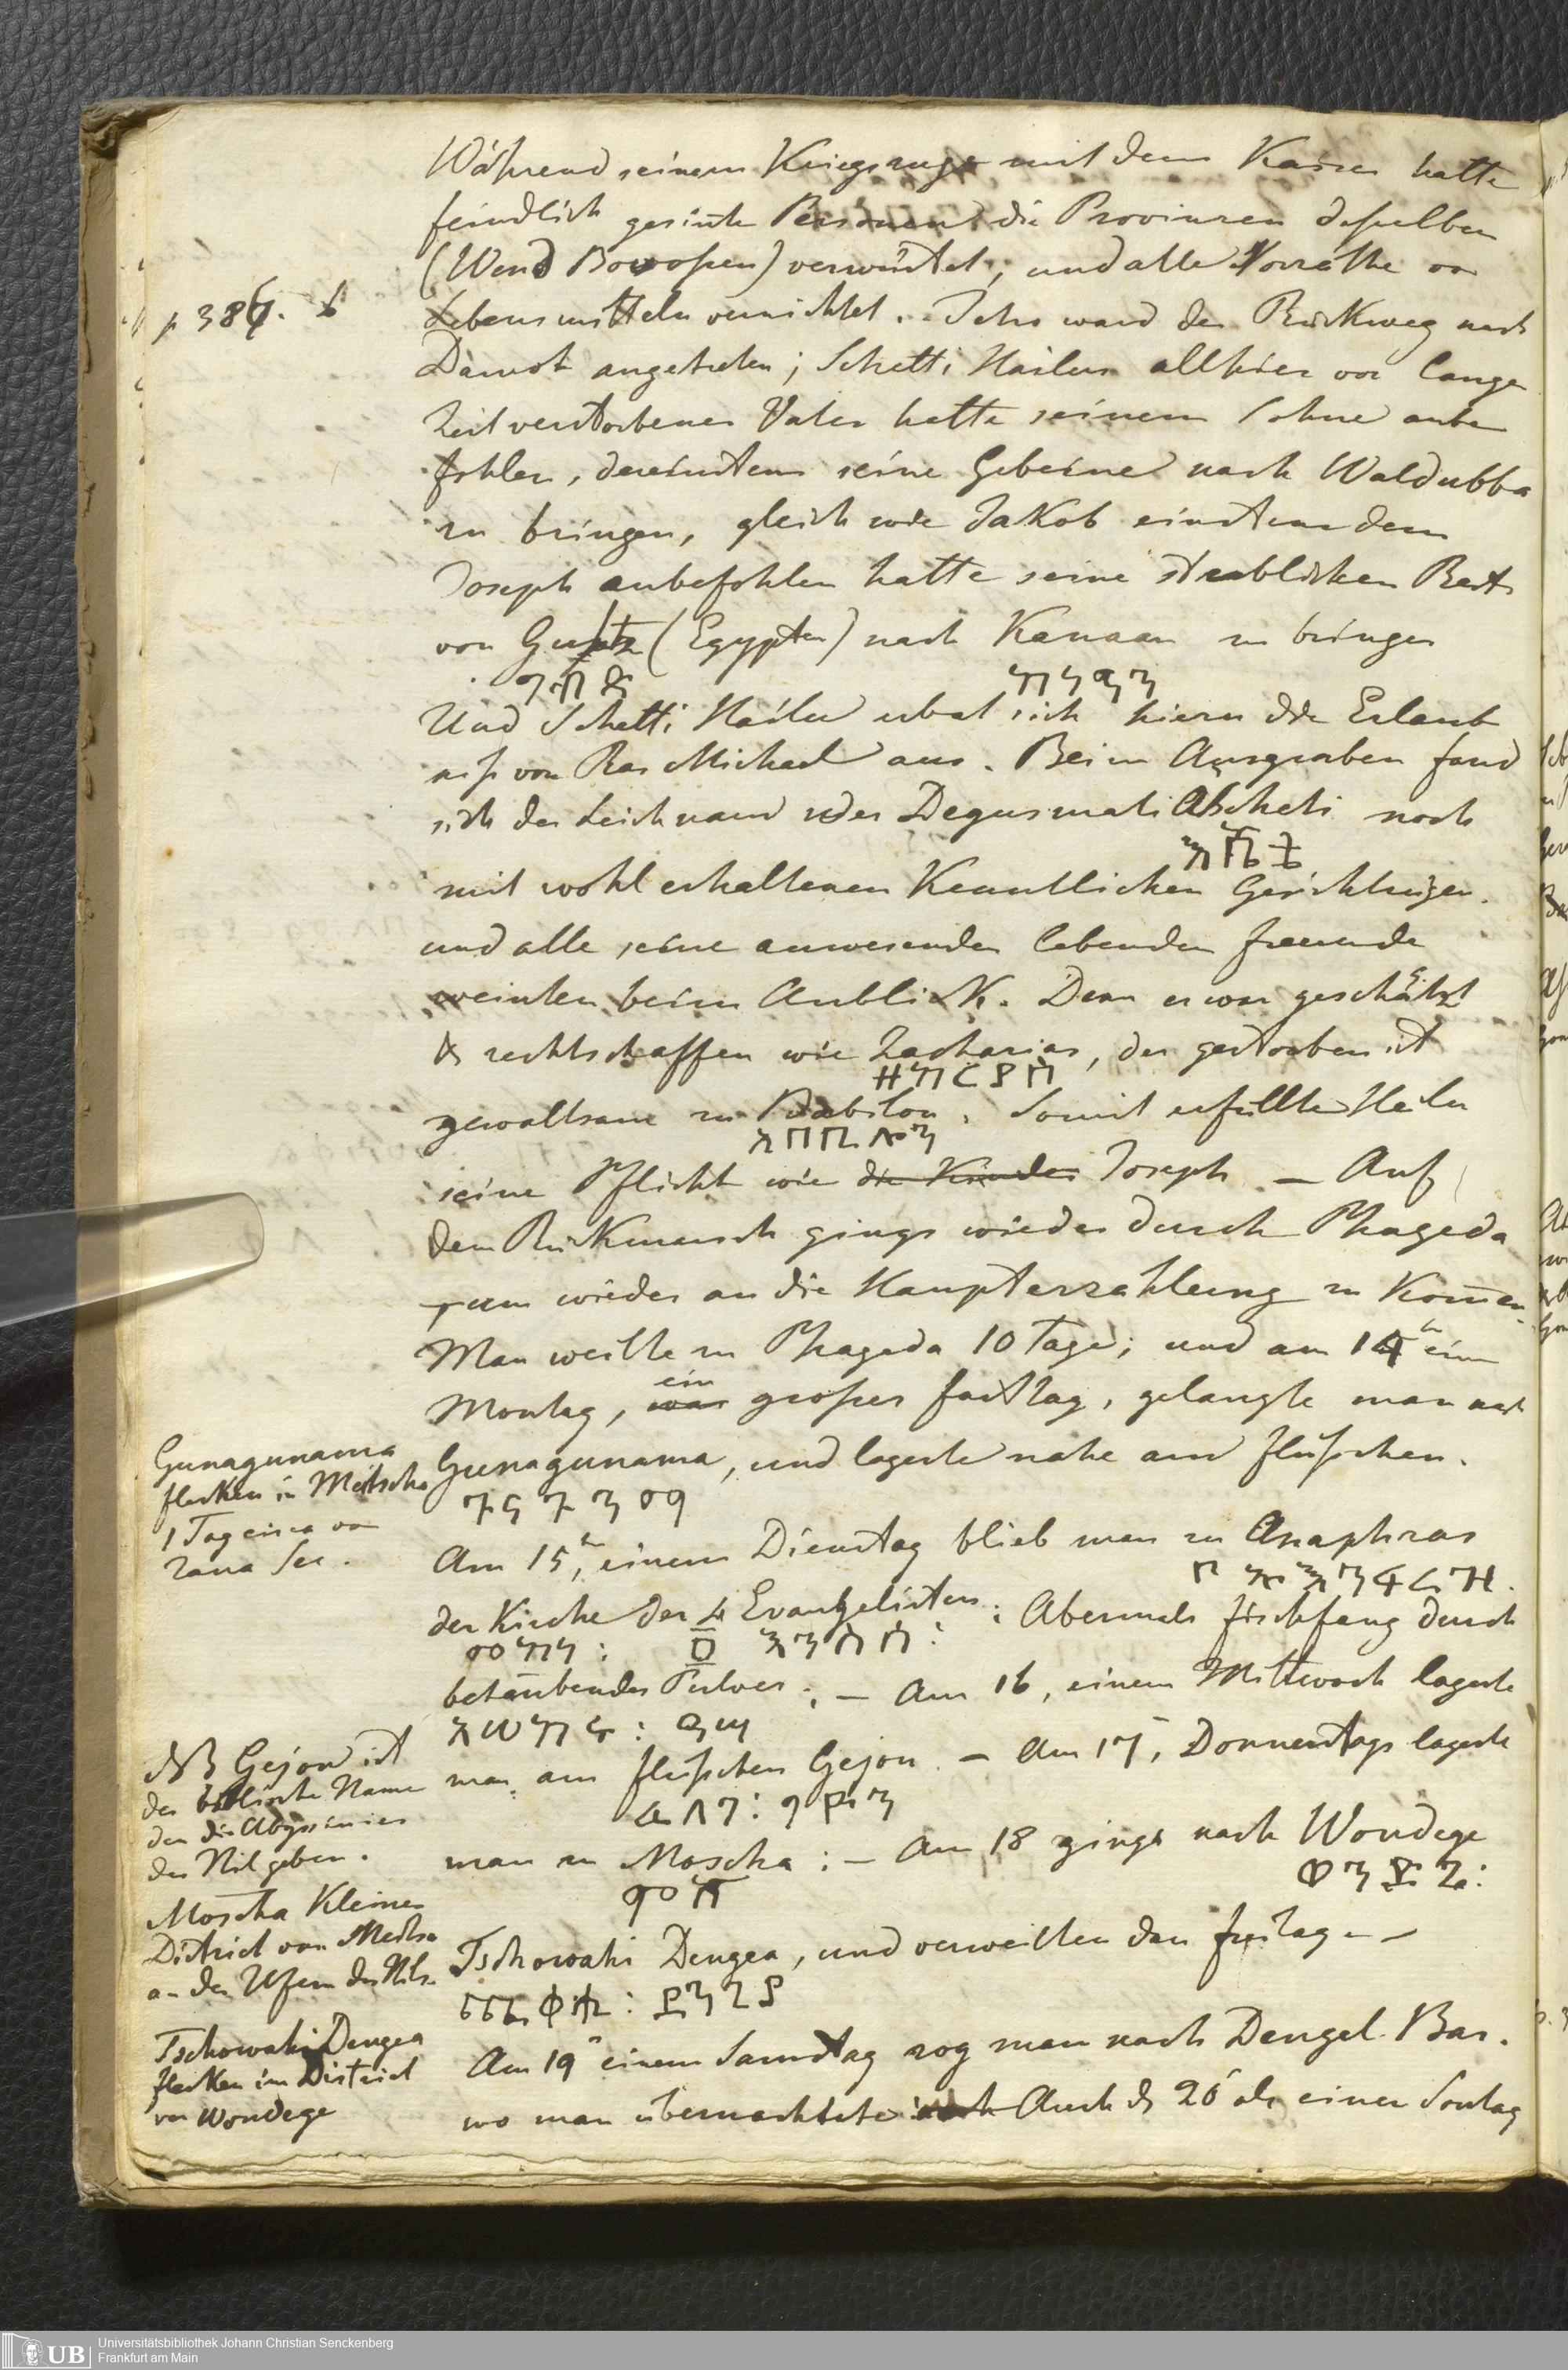 Während seinem Kriegszuge mit dem Kaiser hatte
feindlich gesinte Personen die Provinzen desselben
(Wend Bowossen) verwüstet, und alle Vorräthe von
p 387. b
Lebensmitteln vernichtet. Jetzo ward der Rückweg nach
Damot angetreten; Schetti Hailus allhier vor langer
Zeit verstorbener Vater hatte seinem Sohne anbe
fohlen, dereinstens seine Gebeine nach Waldubba
zu bringen, gleich wie Jakob einstens dem
Joseph anbefohlen hatte seine sterblichen Reste
von (Egypten) nach Kanaan zu bringen
ግብጽ ከነዓን
Und Schetti Hailu erbat sich hierzu die Erlaub
niß von Ras Michael aus. Beim Ausgraben fand
sich der Leichnam des Degusmati Abscheti noch
mit wohl erhaltenen Kenntlichen Gesichtszügen.
und alle seine anwesenden lebenden freunde
weinten beim Anblick. Denn er war geschätzt
& rechtschaffen wie Zacharias, der gestorben ist
ዘካርያስ
gewaltsam zu Babilon. Somit erfüllte Heilu
seine Pflicht wie die Kinder Joseph — Auf
dem Rückmarsch gings wieder durch Phageda
um wieder an die Haupterzählung zu Komen
Man weilte zu Phageda 10 Tage; und am 14n einem
Montag, war ein großer fasttag, gelangte man nach
Gunagunama, und lagerte nahe am flüschen.
ጉናጉንማ
Gunagunama
flecken in Mätscha
1 Tagreise von
Zana See.
Am 15n, einem Dienstag blieb man zu Anaphras
der Kirche der 4 Evangelisten; Abermals fischfang durch
መካነ: ፬ እንስሳ:
betäubendes Pulver; — Am 16, einem Mittwoch lagerte
man am flüschen Gejon — Am 17, Donnerstags lagerte
ፈለገ: ግዮን
NB Gejon ist
der biblische Name
den die Abyssinier
den Nil geben.
man zu Moscha: — Am 18 gings nach Wondege
ሞሻ ወንድጌ:
Moscha Kleiner
District von Metscha
an den Ufern des Nils
Tschowahi Dengea, und verweilten den freitag —
ጭቃሂ: ድንጊያ
Tschowahi Dengea
flecken im District
von Wondege
Am 19n einem Samstag zog man nach Dengel Bar.
wo man übernachtete Auch d 20 als einen Sontag
Universitätsbibliothek Johann Christian Senckenberg
Frankfurt am Main
UB